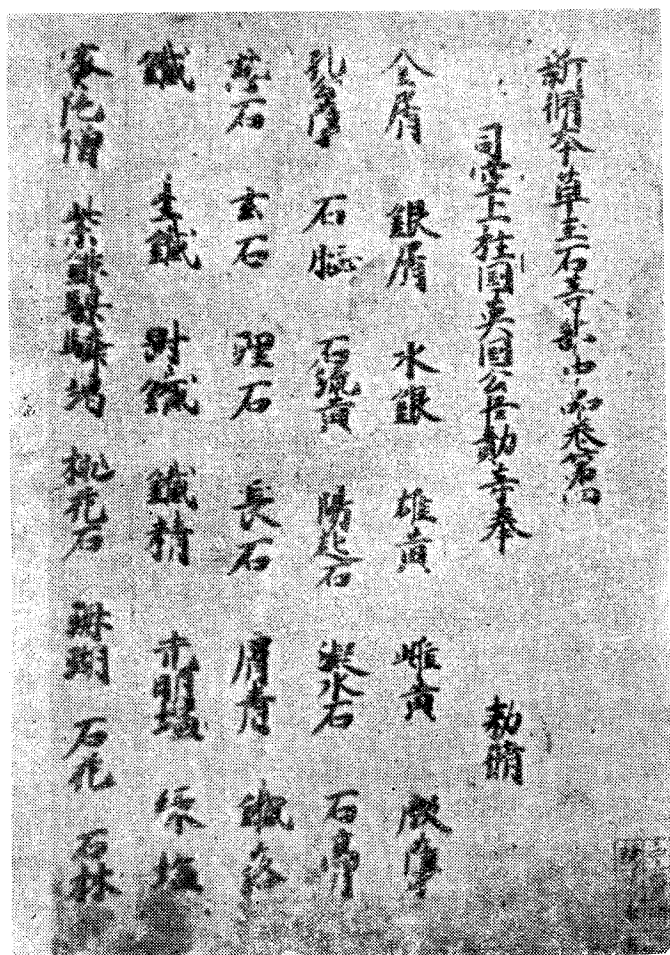 新修本草玉石等部中品卷第四
司空上柱國英國公臣勣等奉 勑脩
金屑 銀屑 水銀 雄黃 雌黃 殷孽
孔公孽 石腦 石硫黃 陽起石 凝水石 石膏
慈石 玄石 理石 長石 膚青 鐵落
鐵 生鐵 剛鐵 鐵精 光明塩 緑塩
蜜陀僧 紫鉚騏驎竭 桃花石 珊瑚 石花 石牀